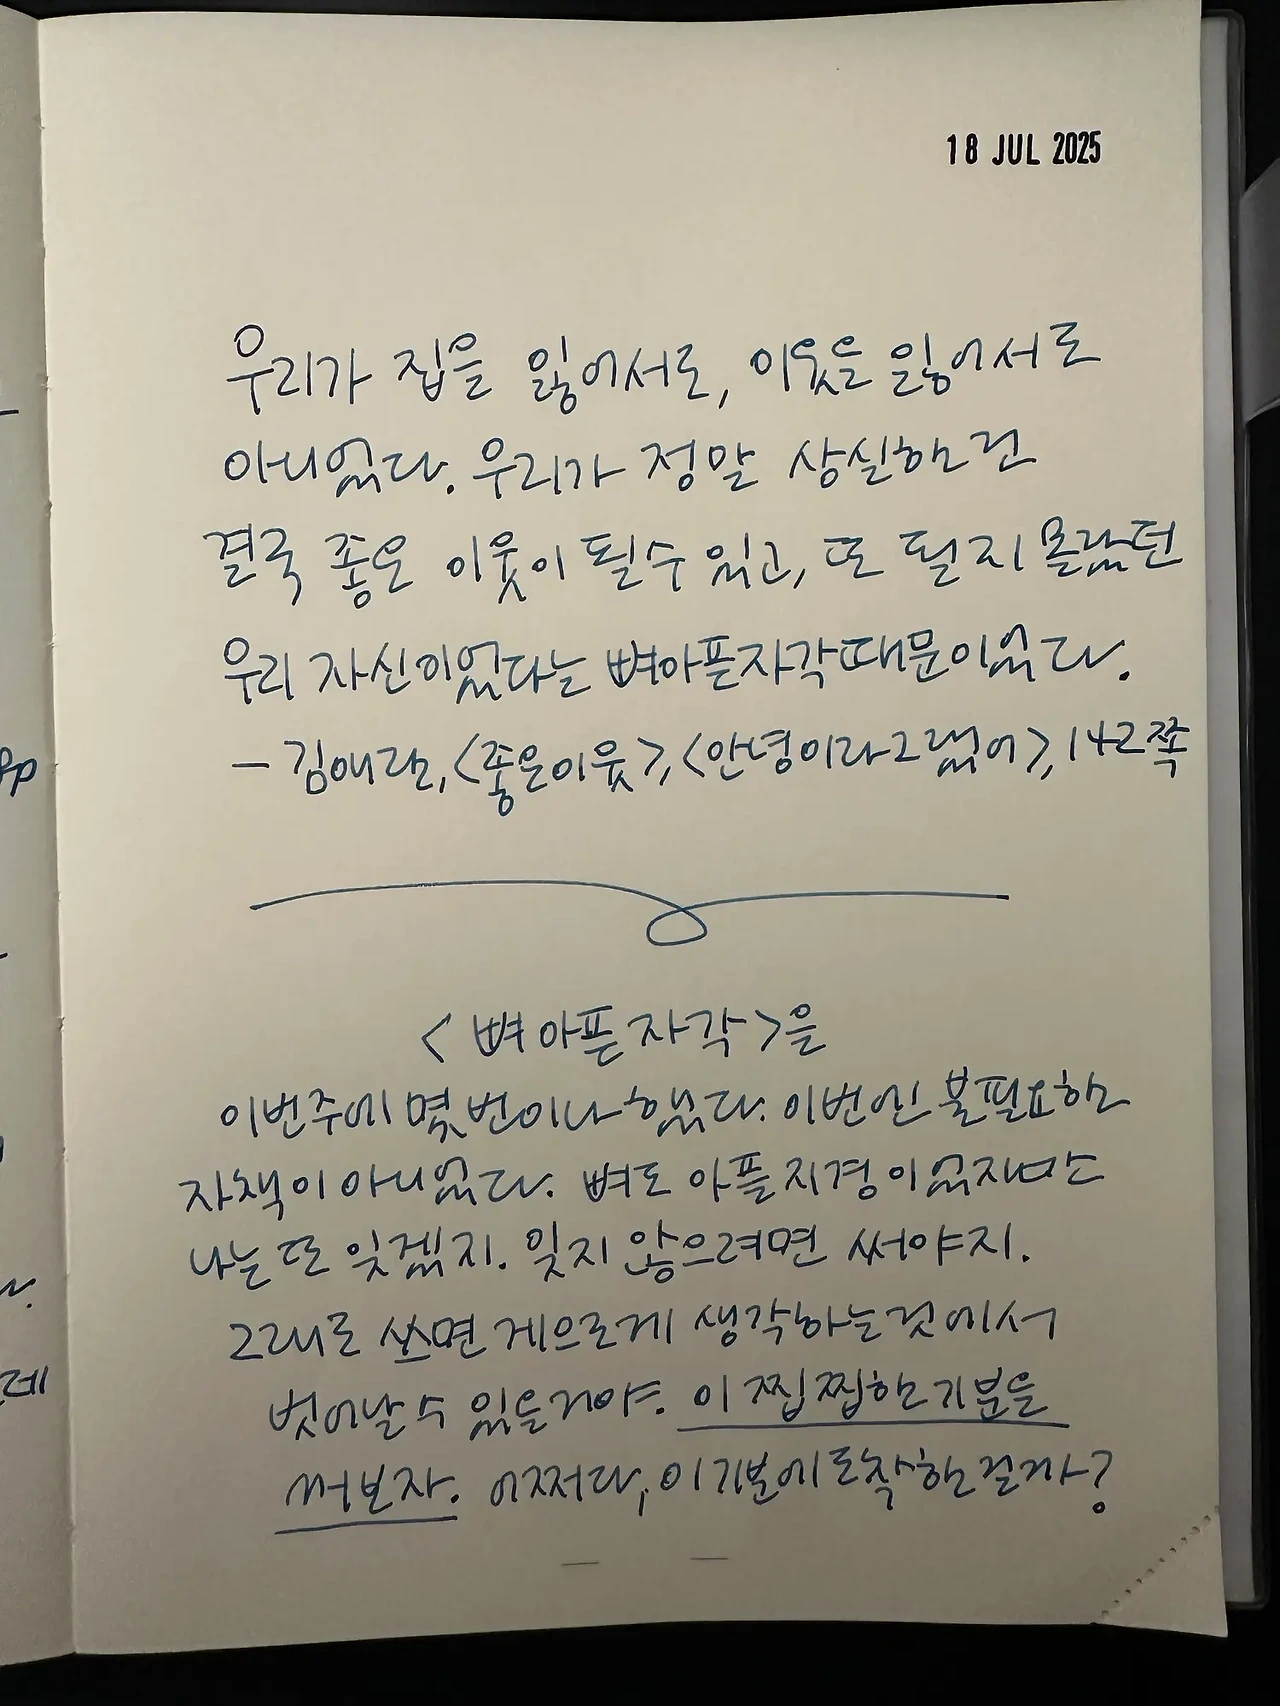 18 JUL 2025
우리가 집을 잃어서로, 이웃을 잃어서로
아니었다. 우리가 정말 상실한 건
결국 좋은 이웃이 될 수 있고, 또 될 지 몰랐던
우리 자신이었다는 뼈아픈 자각 때문이었다.
— 김애란, <좋은이웃>, <안녕이라 그랬어>, 142쪽
<뼈아픈 자각>을
이번주에 몇 번이나 했다. 이번엔 불필요한
자책이 아니었다. 뼈도 아플 지경이었지만
나는 또 잊겠지. 잊지 않으려면 써야지.
그대로 쓰면 게으르게 생각하는 것에서
벗어날 수 있을거야. 이 찝찝한 기분을
써보자. 어쩌다, 이 기분에 도착한 걸까?